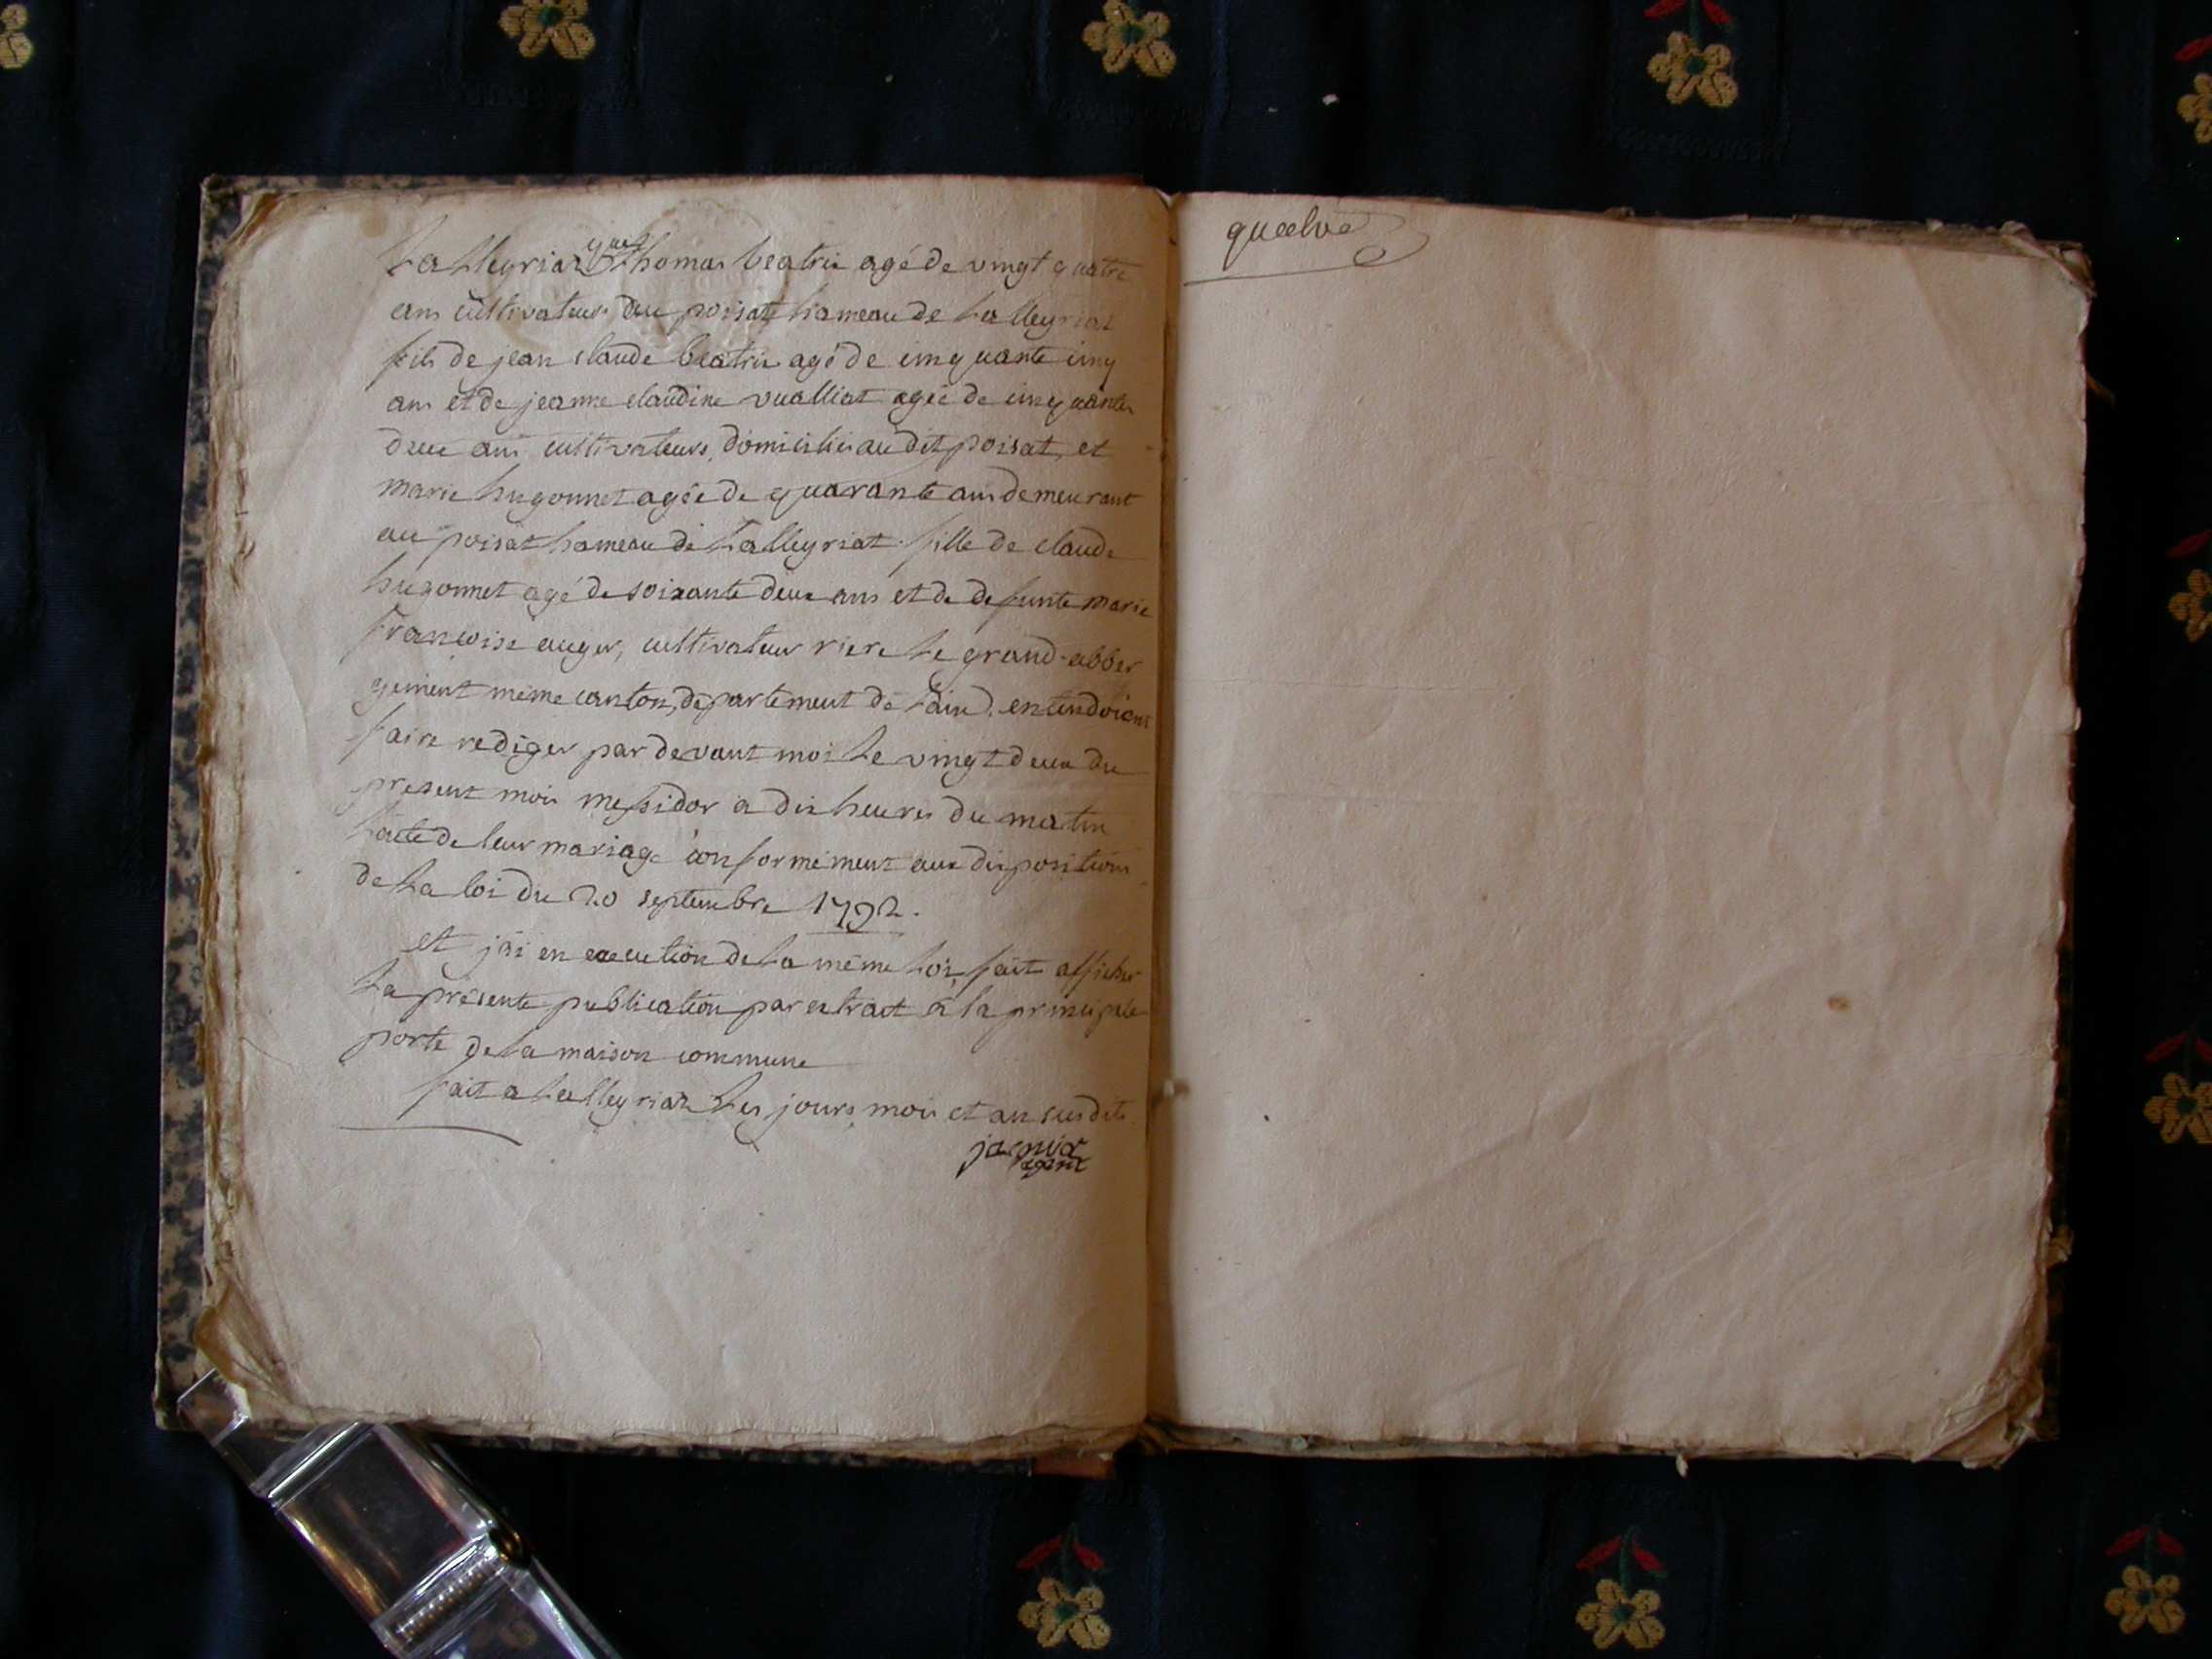 Lalleyriat que thomas beatrix agé de vingt quatre
ans cultivateur du poisat hameau de Lalleyriat
fils de jean claude beatrix agé de cinquante cinq
ans et de jeanne claudine vualliat agée de cinquante
deux ans cultivateurs, domiciliés au dit poisat, et
marie hugonnet agée de quarante ans demeurant
au poisat hameau de Lalleyriat fille de claude
hugonnet agé de soixante deux ans et de defunte marie
francoise auger, cultivateur riere Le grand-abber
gement même canton, département de Lain, entendoient
faire rediger par devant moi Le vingt deux du
present mois messidor a dix heures du matin
Lacte de leur mariage conformément aux dispositions
de La loi du 20 septembre 1792.
et j'ai en execution de La même Loi, fait afficher
La présente publication par extrait a la principale
porte de La maison commune
fait a Lalleyriat Les jours mois et an susdits
agent